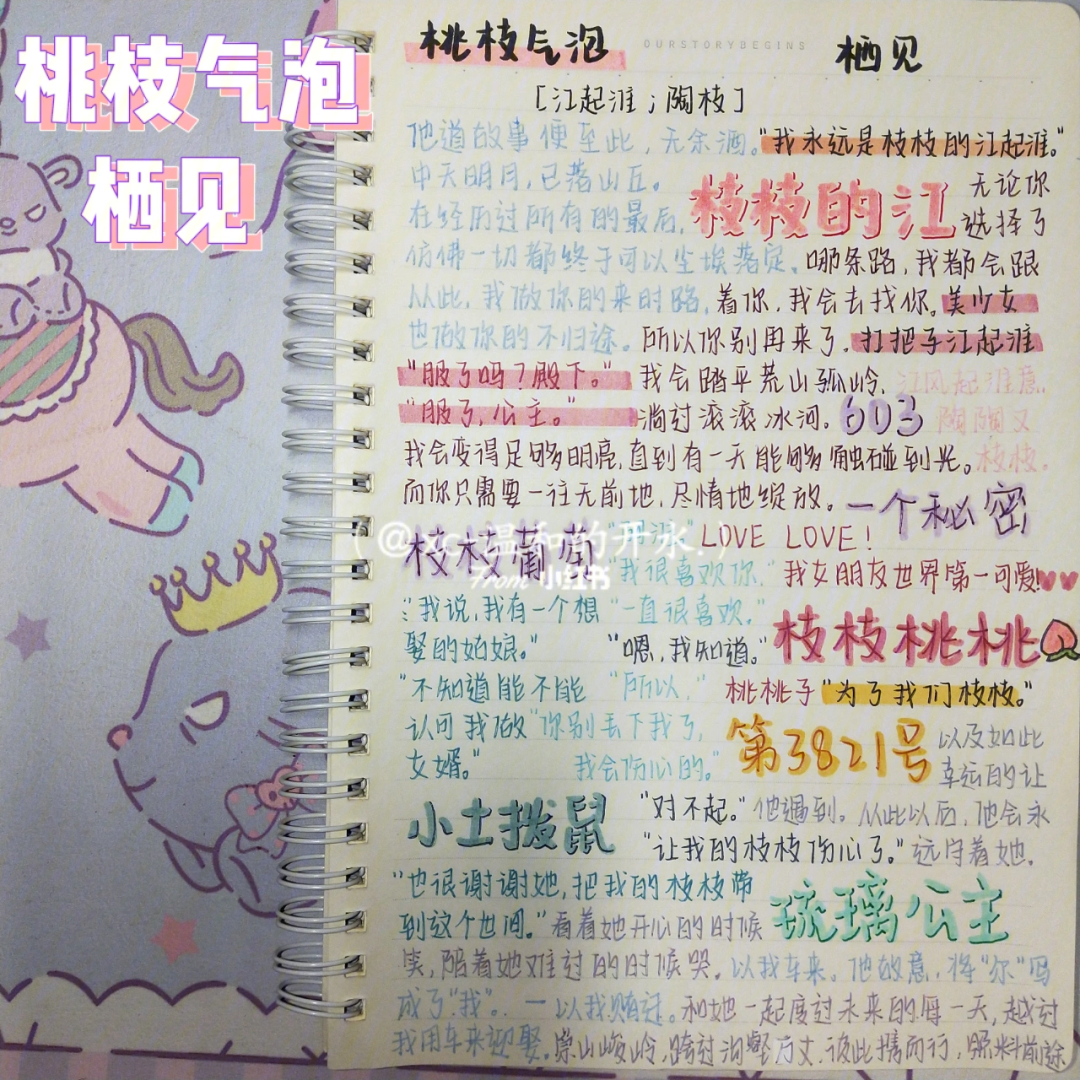 桃枝气泡
栖见
桃枝气泡
OURSTORYBEGINS
栖见
[江起淮；陶枝]
他道故事便至此，无余酒。
中天明月，已落山丘。
在经历过所有的最后，
仿佛一切都终于可以尘埃落定。
从此，我做你的来时路，
也做你的不归途。
"我永远是枝枝的江起淮。"
枝枝的江
无论你
选择了
哪条路，我都会跟
着你，我会去找你。
所以你别再来了。
美少女
扛把子江起淮
"服了吗？殿下。"
"服了，公主。"
我会踏平荒山孤岭，
淌过滚滚冰河。
603
江风起淮意，
陶陶又
枝枝。
我会变得足够明亮，直到有一天能够触碰到光。
而你只需要一往无前地，尽情地绽放。
一个秘密
枝枝葡萄
(@xc.温和的开水.)
From 小红书
LOVE LOVE！
"我很喜欢你，"
我女朋友世界第一可爱！
"我说，我有一个想
娶的姑娘。"
"一直很喜欢。"
"嗯，我知道。"
枝枝桃桃
"不知道能不能
认可我做
女婿。"
"所以，"
"你别丢下我了，
我会伤心的。"
桃桃子
"为了我们枝枝。"
第3821号
以及如此
幸运的让
他遇到。从此以后，他会永
远守着她，
小土拨鼠
"对不起。"
"让我的枝枝伤心了。"
"也很谢谢她，把我的枝枝带
到这个世间。"
琉璃公主
看着她开心的时候
笑，陪着她难过的时候哭。
以我车来。他故意，将"尔"吗
成了"我"。一以我贿迁。
我用车来迎娶。
和她一起度过未来的每一天，越过
崇山峻岭，跨过沟壑万丈，彼此携而行，照料前途